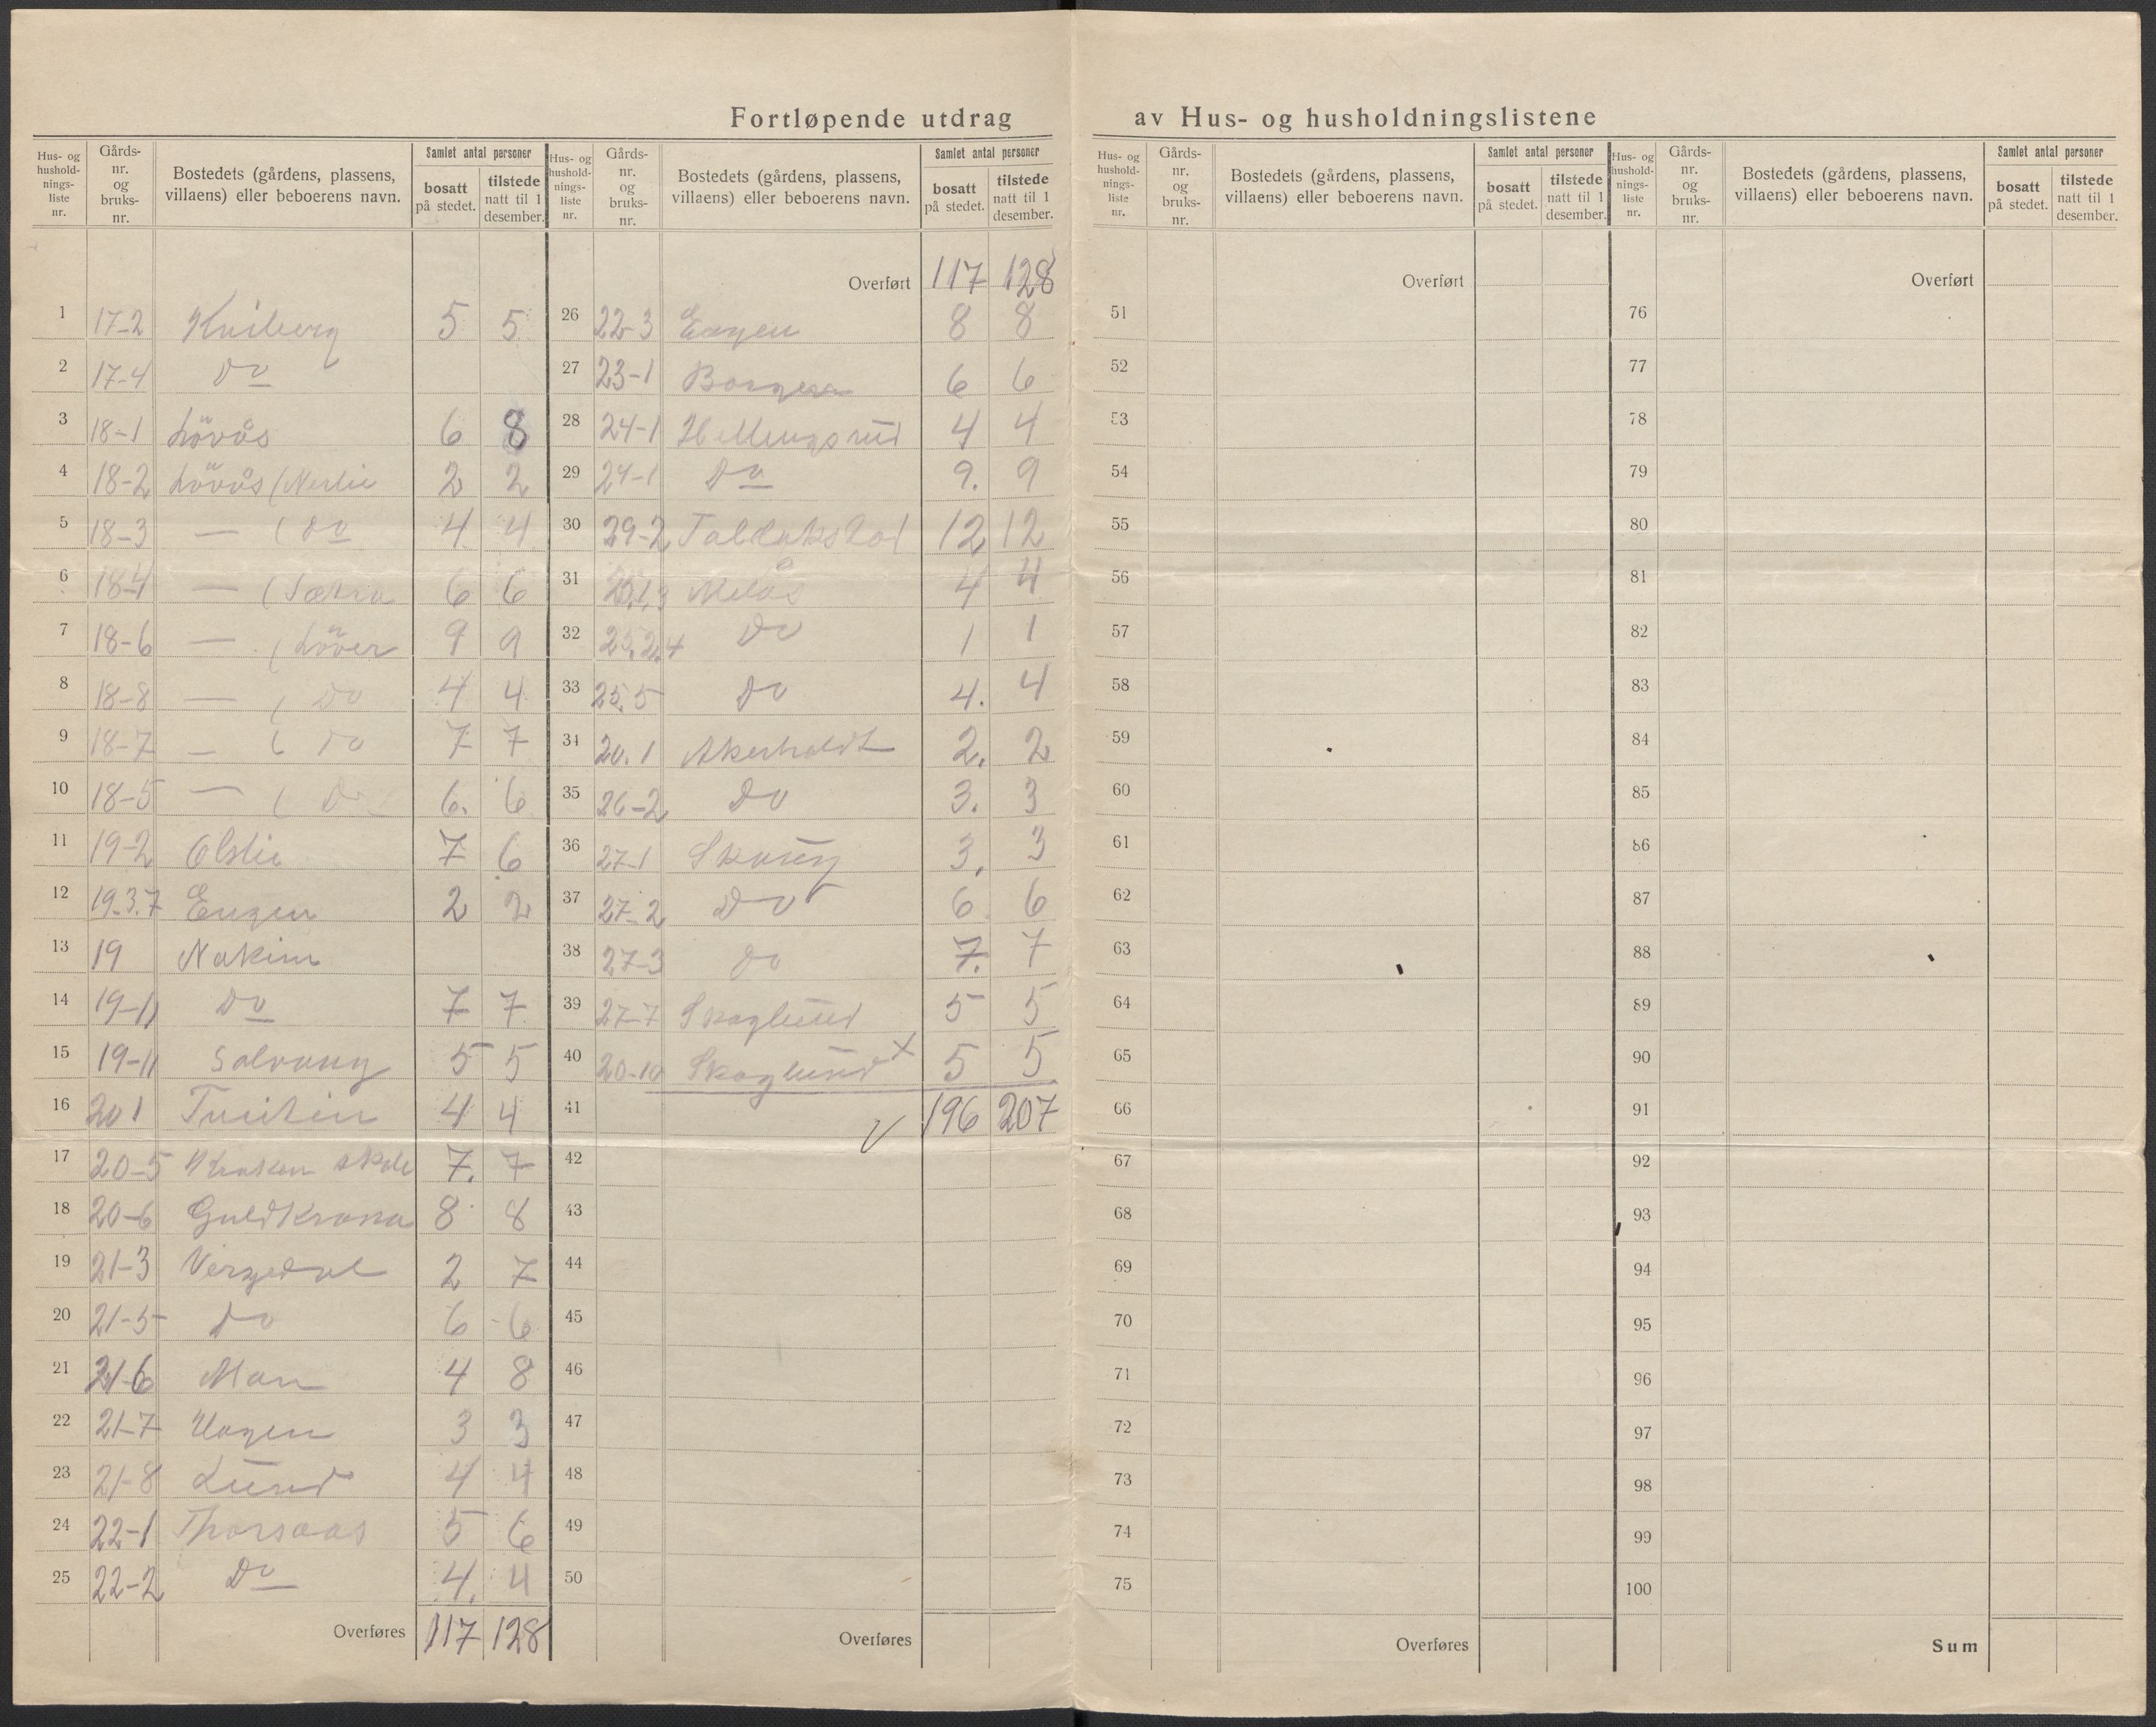 Fortløpende utdrag av Hus- og husholdningslistene
Hus- og hushold- nings- liste nr. Gårds- nr. og bruks- nr. Bostedets (gårdens, plassens, villaens) eller beboerens navn. Samlet antal personer bosatt på stedet. tilstede natt til 1 desember.
1 17-2 Kniberg 5 5
2 17-4 Do
3 18-1 Lövås 6 8
4 18-2 Lövås (Nerlie 2 2
5 18-3 — (Do 4 4
6 18-4 — (Sætra 6 6
7 18-6 — (Löver 9 9
8 18-8 — ( Do 4 4
9 18-7 — ( Do 7 7
10 18-5 — ( Do 6. 6
11 19-2 Olslie 7 6
12 19.3.7 Engen 2 2
13 19 Nakim
14 19-11 Do 7 7
15 19-11 Solvang 5 5
16 20 1 4 4
17 20-5 skole 7. 7
18 20-6 Guldkrona 8 8
19 21-3 Vergedal 2 7
20 21-5 Do 6 6
21 21-6 Moen 4 8
22 21-7 Hagen 3 3
23 21-8 Lund 4 4
24 22-1 Thorsaas 5 6
25 22-2 Do 4. 4
Overføres 117 128
Hus- og hushold- nings- liste nr. Gårds- nr. og bruks- nr. Bostedets (gårdens, plassens, villaens) eller beboerens navn. Samlet antal personer bosatt på stedet. tilstede natt til 1 desember.
Overført 117 128
26 22-3 Engen 8 8
27 23-1 Borgen 6 6
28 24-1 Hellingsrud 4 4
29 24-1 Do 9. 9
30 29-2 12 12
31 Melås 4 4
32 25,2.4 Do 1 1
33 25.5 Do 4. 4
34 20.1 Akerholdt 2. 2
35 26-2 Do 3. 3
36 27-1 Skoug 3. 3
37 27-2 Do 6 6
38 27-3 Do 7. 7
39 27-7 Skoglund 5 5
40 20-10 Skoglund x 5 5
41 √ 196 207
42
43
44
45
46
47
48
49
50
Overføres
Hus- og hushold- nings- liste nr. Gårds- nr. og bruks- nr. Bostedets (gårdens, plassens, villaens) eller beboerens navn. Samlet antal personer bosatt på stedet. tilstede natt til 1 desember.
Overført
51
52
53
54
55
56
57
58
59
60
61
62
63
64
65
66
67
68
69
70
71
72
73
74
75
Overføres
Hus- og hushold- nings- liste nr. Gårds- nr. og bruks- nr. Bostedets (gårdens, plassens, villaens) eller beboerens navn. Samlet antal personer bosatt på stedet. tilstede natt til 1 desember.
Overført
76
77
78
79
80
81
82
83
84
85
86
87
88
89
90
91
92
93
94
95
96
97
98
99
100
Sum